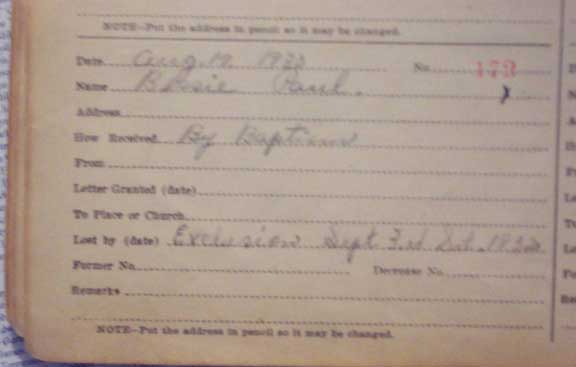 NOTE—Put the address in pencil so it may be changed.
Date Aug. 19. 1922 No. 173
Name Bessie Paul.
Address
How Received By Baptism
From
Letter Granted (date)
To Place or Church
Lost by (date) Exclusion Sept 3rd Sat. 1922
Former No. Decrease No.
Remarks
NOTE—Put the address in pencil so it may be changed.